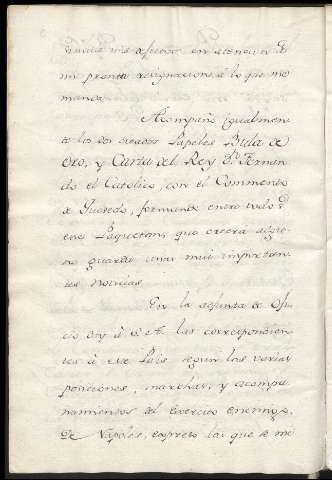 en atencion á
mi pronta resignacion á lo que me
manda.
Acompaño igualmen
te los dos citados Papeles Bula de
oro, y Carta del Rey Dn. Fernan
do el Catolico, con el Commento
de Quevedo, formando entre todo
ese Paqueton, que creerá
no guarda unas mui importan
tes noticias.
En la adjunta de Ofi
cio doy á V. E. las correspondien
tes á este Pais segun las varias
posiciones, marchas, y acampa
mamientos del exercito enemigo,
de Napoles, excepto las que se me